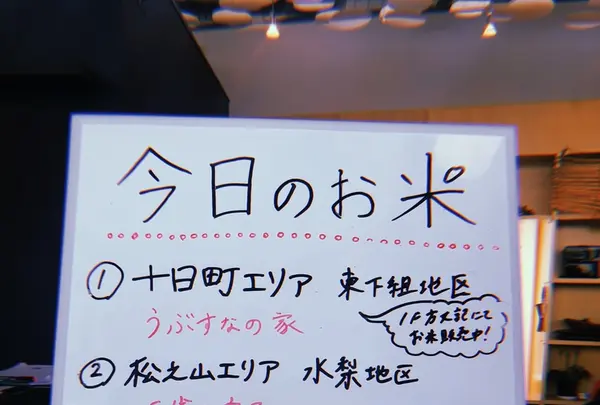 今日のお米
① 十日町エリア 東下組地区
うぶすなの家
1F方丈記にて
お米販売中!
② 松之山エリア 水梨地区